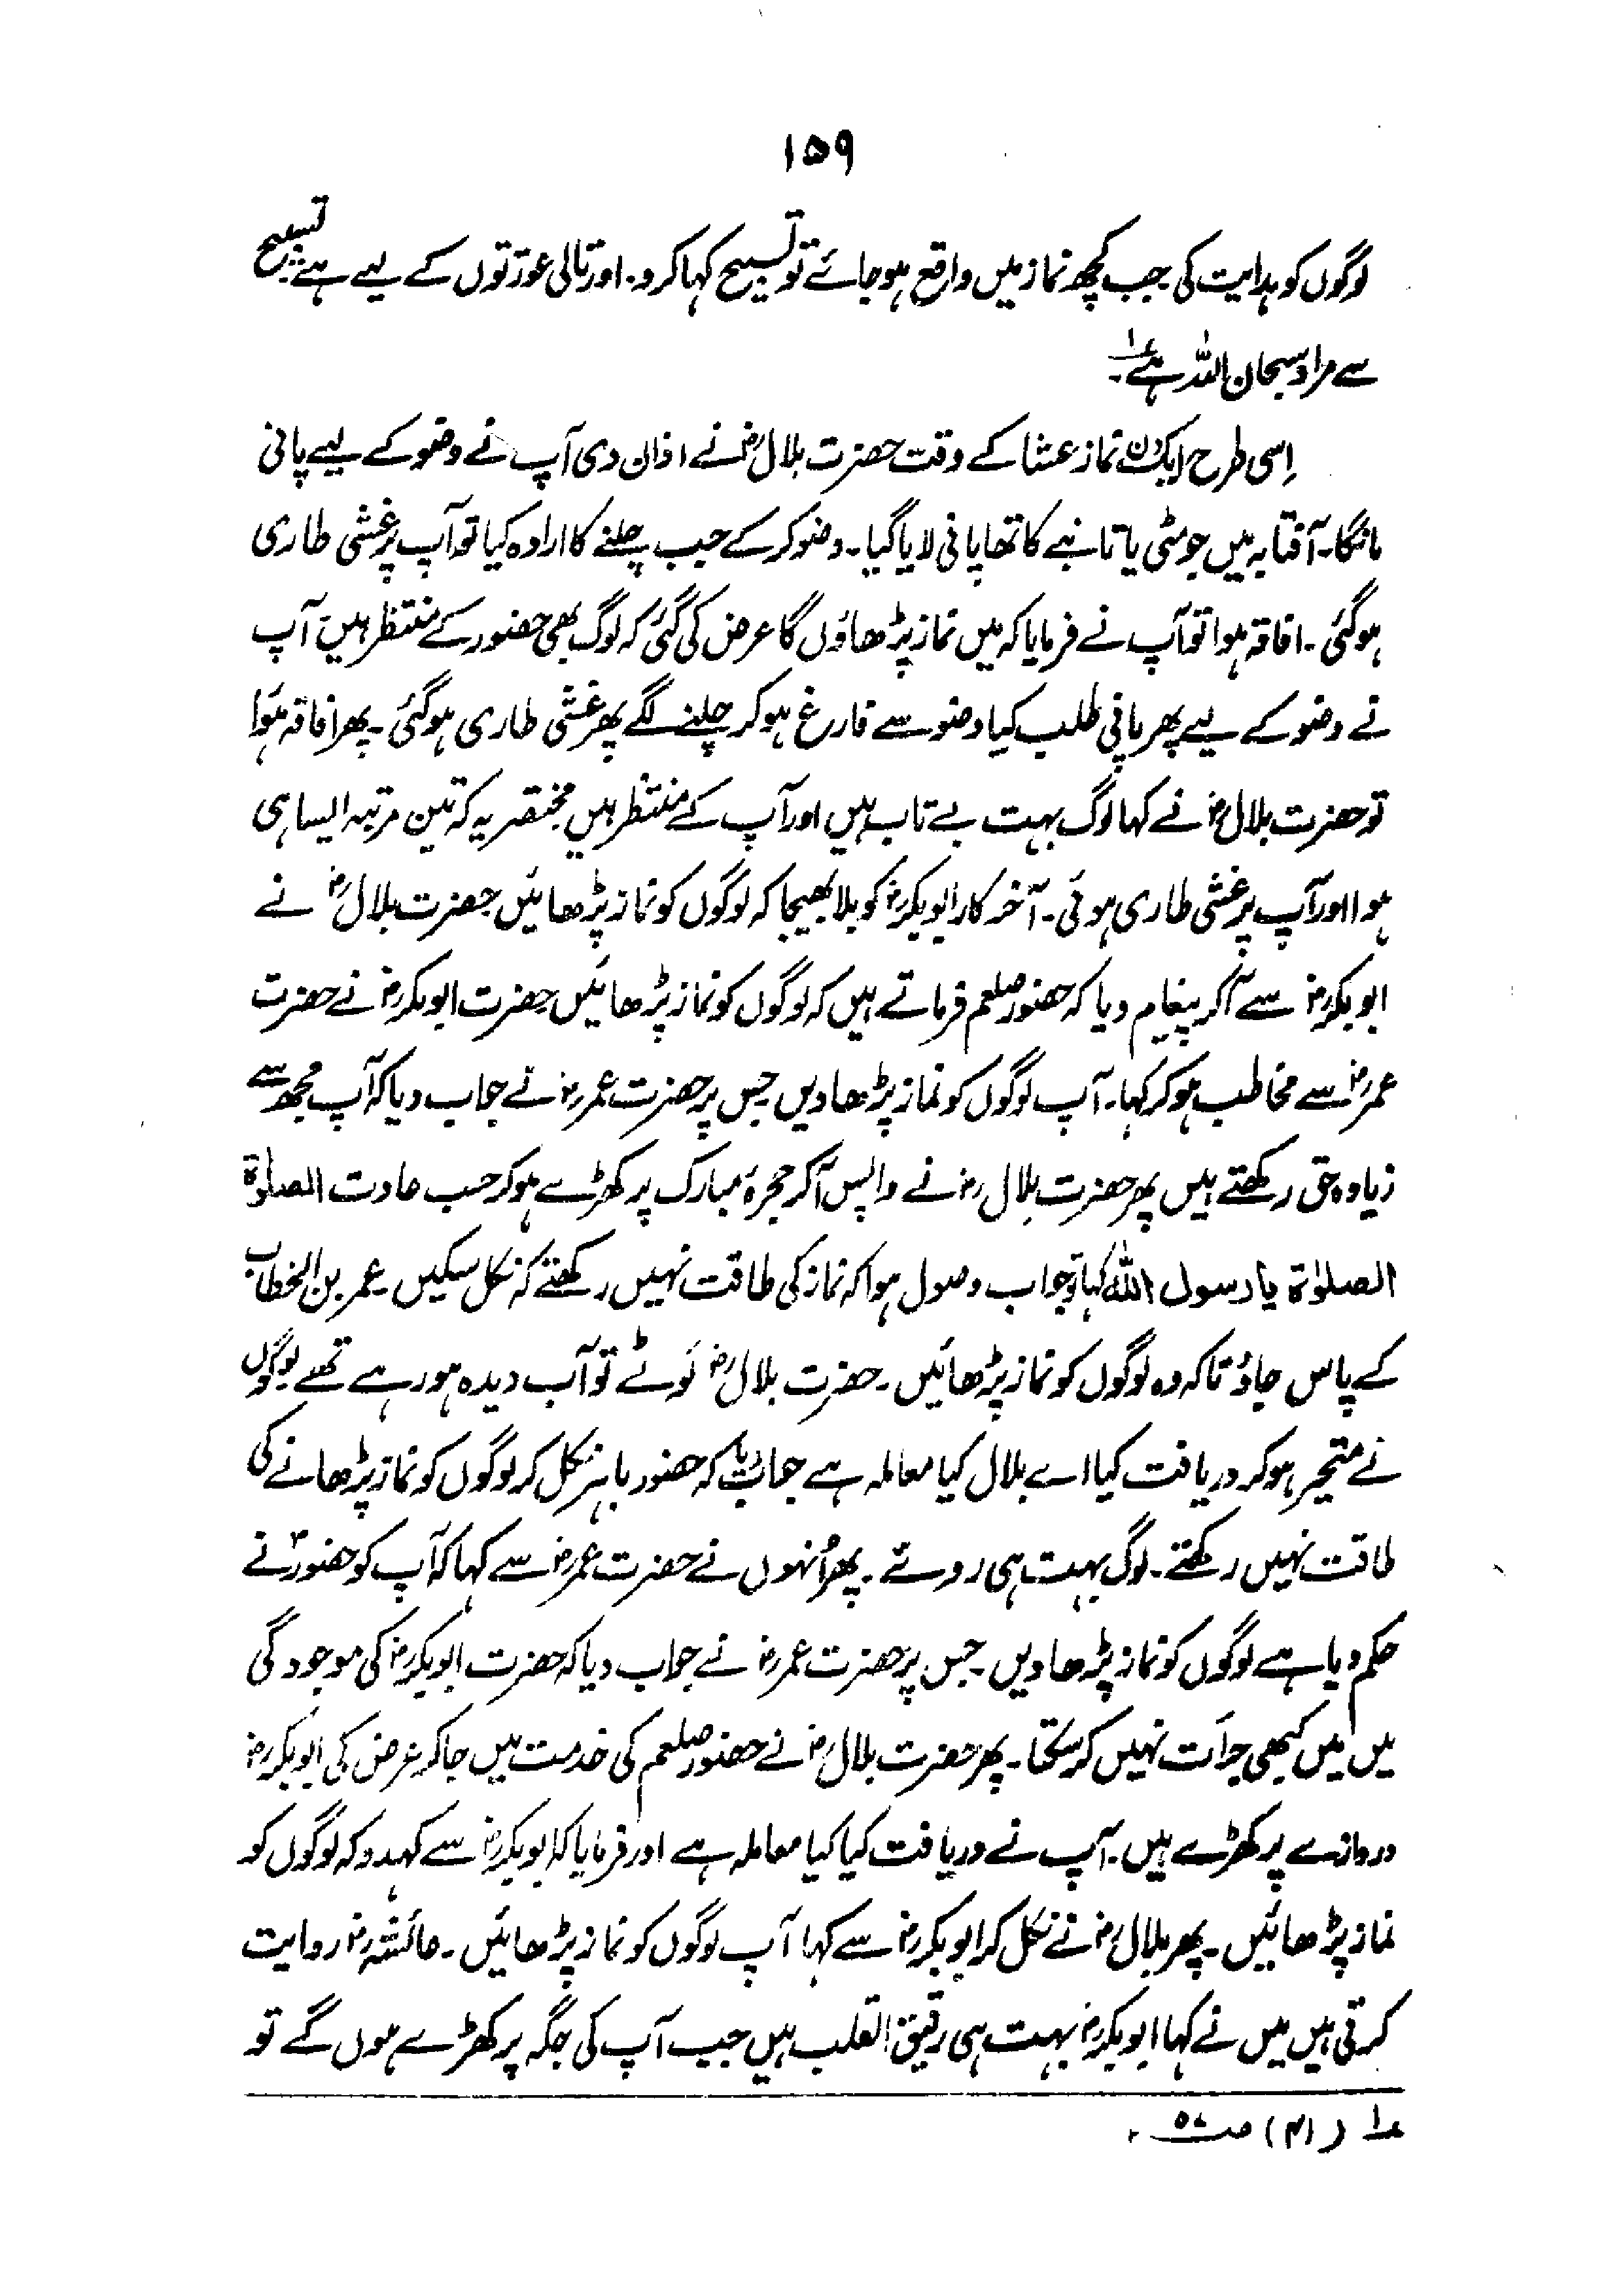 ۱۵۹
لوگوں کو ہدایت کی جب کچھ نماز میں واقع ہو جائے تو تسبیح کہا کرو۔ اور تالی عورتوں کے لیے ہے تسبیح
سے مراد سبحان اللہ ہے۔ ؏۱
اِسی طرح ایک دن نماز عشا کے وقت حضرت بلالؓ نے اذان دی آپ نے وضو کے لیے پانی
مانگا۔ آفتابہ میں جو مٹی یا تانبے کا تھا پانی لایا گیا۔ وضو کر کے جب چلنے کا ارادہ کیا تو آپ پر غشی طاری
ہو گئی۔ افاقہ ہوا تو آپ نے فرمایا کہ میں نماز پڑھاؤں گا عرض کی گئی کہ لوگ بھی حضور کے منتظر ہیں۔ آپ
نے وضو کے لیے پھر پانی طلب کیا وضو سے فارغ ہو کر چلنے لگے پھر غشی طاری ہو گئی۔ پھر افاقہ ہوَا
تو حضرت بلالؓ نے کہا لوگ بہت بے تاب ہیں اور آپ کے منتظر ہیں مختصر یہ کہ تین مرتبہ ایسا ہی
ہوا اور آپ پر غشی طاری ہوئی۔ آخر کار ابوبکرؓ کو بلا بھیجا کہ لوگوں کو نماز پڑھائیں حضرت بلالؓ نے
ابوبکرؓ سے آکر پیغام دیا کہ حضور صلعم فرماتے ہیں کہ لوگوں کو نماز پڑھائیں حضرت ابوبکرؓ نے حضرت
عمرؓ سے مخاطب ہو کر کہا۔ آپ لوگوں کو نماز پڑھا دیں جس پر حضرت عمرؓ نے جواب دیا کہ آپ مجھ سے
زیادہ حق رکھتے ہیں پھر حضرت بلالؓ نے واپس آکر حجرۂ مبارک پر کھڑے ہو کر حسب عادت الصلوٰۃ
الصلوٰۃ یا رسول اللہ کہا تو جواب وصول ہوا کہ نماز کی طاقت نہیں رکھتے کہ نکل سکیں۔ عمر بن الخطاب
کے پاس جاؤ تاکہ وہ لوگوں کو نماز پڑھائیں۔ حضرت بلالؓ لَوٹے تو آب دیدہ ہو رہے تھے لوگوں
نے متحیر ہو کر دریافت کیا اے بلال کیا معاملہ ہے جواب دیا کہ حضور باہر نکل کر لوگوں کو نماز پڑھانے کی
طاقت نہیں رکھتے۔ لوگ بہت ہی روئے۔ پھر اُنہوں نے حضرت عمرؓ سے کہا کہ آپ کو حضورؐ نے
حکم دیا ہے لوگوں کو نماز پڑھا دیں۔ جس پر حضرت عمرؓ نے جواب دیا کہ حضرت ابوبکرؓ کی موجودگی
میں میں کبھی جرأت نہیں کر سکتا۔ پھر حضرت بلالؓ نے حضور صلعم کی خدمت میں جا کر عرض کی ابوبکرؓ
دروازے پر کھڑے ہیں۔ آپ نے دریافت کیا کیا معاملہ ہے اور فرمایا کہ ابوبکرؓ سے کہدو کہ لوگوں کو
نماز پڑھائیں۔ پھر بلالؓ نے نکل کر ابوبکرؓ سے کہا آپ لوگوں کو نماز پڑھائیں۔ عائشہؓ روایت
کرتی ہیں میں نے کہا ابوبکرؓ بہت ہی رقیق القلب ہیں جب آپ کی جگہ پر کھڑے ہوں گے تو
؏۱ (۴۱)